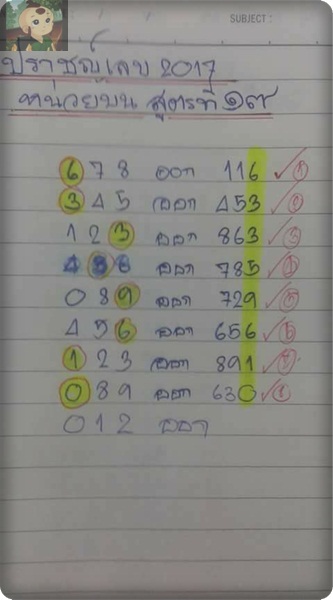 SUBJECT :
ปราชญ์เลข 2017
หน่วยบน สูตรที่ ๑๙
6 7 8 ออก 116 ✓ ①
3 4 5 ออก 453 ✓ ②
1 2 3 ออก 863 ✓ ③
4 5 6 ออก 785 ✓ ④
0 8 9 ออก 729 ✓ ⑤
4 5 6 ออก 656 ✓ ⑥
1 2 3 ออก 891 ✓ ⑦
0 8 9 ออก 630 ✓
0 1 2 ออก